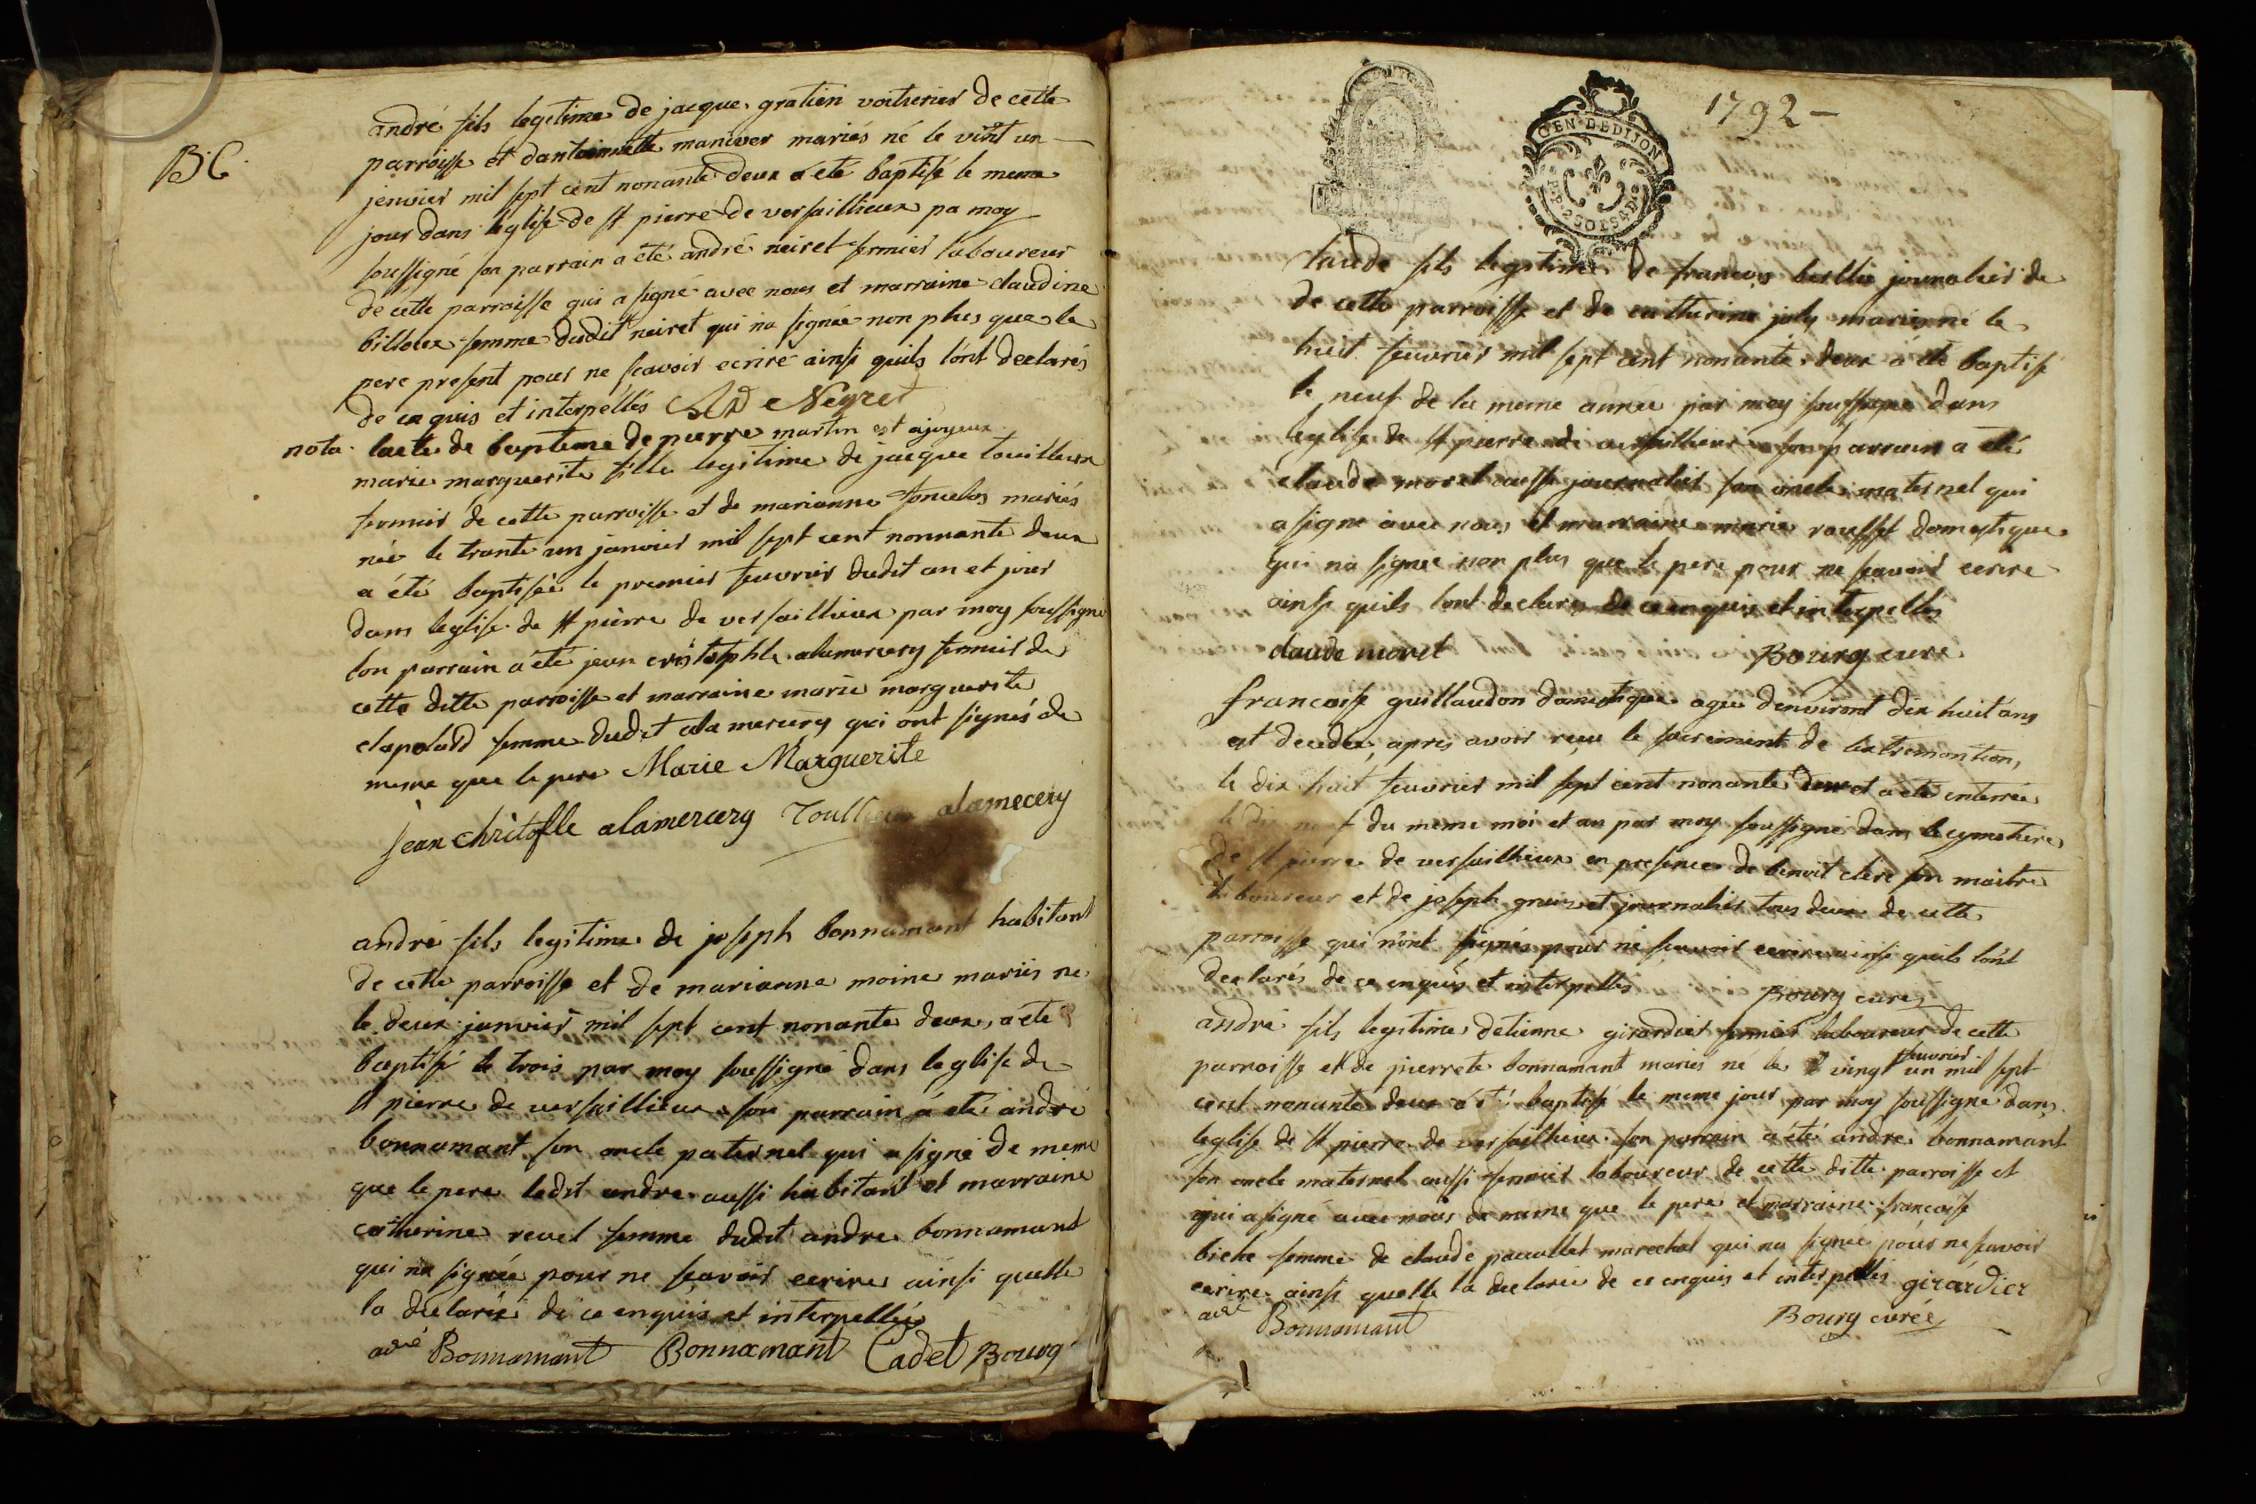 B.C.
andré fils legitime de jacque gratien voiturier de cette
parroisse et dantoinette maniver mariés né le vint un
jenvier mil sept cent nonante deux a été baptisé le meme
jour dans leglise de st pierre de versaillieux pa moy
soussigné son parrain a été andré neiret fermier laboureur
de cette parroisse qui a signé avec nous et marraine claudine
billoux femme dudit neiret qui na signée non plus que le
pere present pour ne scavoir ecrire ainsi quils lont declarés
de ce quis et interpellés Neyret
nota lacte de bapteme de pierre martin est ajoyeux
marie marguerite fille legitime de jacque touillieux
fermier de cette parroisse et de marianne mariés
née le trante un janvier mil sept cent nonnante deux
a été baptisée le premier feuvrier dudit an et jour
dans leglise de st pierre de versaillieux par moy soussigné
son parrain a été jean cristophle alamercery fermier de
cette ditte parroisse et marraine marie marguerite
clapolard femme dudit alamercery qui ont signés de
meme que le pere Marie Marguerite
jean christofle alamercery alamecery
andré fils legitime de joseph bonnamant habitant
de cette parroisse et de marianne moine mariés ne
le deux janvier mil sept cent nonante deux, a ete
baptisé le trois par moy soussigné dans leglise de
st pierre de versaillieux son parrain a été andré
bonnamant son oncle paternel qui a signé de meme
que le pere ledit andre aussi habitant et marraine
catherine revel femme dudit andre bonnamant
qui na signée pour ne scavoir ecrire ainsi quelle
la declarée de ce enquis et interpellée
adré Bonnamant Bonnamant Cadet Bourg
1792 -
GEN. DE DIJON
claude fils legitime de francois journalier de
de cette parroisse et de catherine joly mariés né le
huit feuvrier mil sept cent nonante deux a été baptisé
le neuf de la meme année par moy soussigné dans
leglise de st pierre de versaillieux son parrain a été
claude morel aussi journalier son oncle maternel qui
a signé avec nous et marraine marie rousset domestique
qui na signée non plus que le pere pour ne scavoir ecrire
ainsi quils lont declarés de ce enquis et interpellés
claude morel Bourg curé
francoise guillaudon domestique agée denviront dix huit ans
est decedée, apres avoir reçu le sacrement de lextremontion,
le dix huit feuvrier mil sept cent nonante deux et a été enterrée
le dix neuf du meme moi et an par moy soussigné dans le cymetiere
de st pierre de versaillieux en presence de benoit clerc son maitre
laboureur et de joseph journalier tous deux de cette
parroisse qui nont signés pour ne scavoir ecrire ainsi quils lont
declarés de ce enquis et interpellés Bourg curé
andré fils legitime detienne girardier fermier laboureur de cette
parroisse et de pierrete bonnamant mariés né le vingt un feuvrier mil sept
cent nonante deux a été baptisé le meme jour par moy soussigné dans
leglise de st pierre de versaillieux son parrain a été andré bonnamant
son oncle maternel aussi fermier laboureur de cette ditte parroisse et
qui a signé avec nous de meme que le pere et marraine francoise
biche femme de claude marechal qui na signée pour ne scavoir
ecrire ainsi quelle la declarée de ce enquis et interpellés girardier
adré Bonnamant Bourg curée